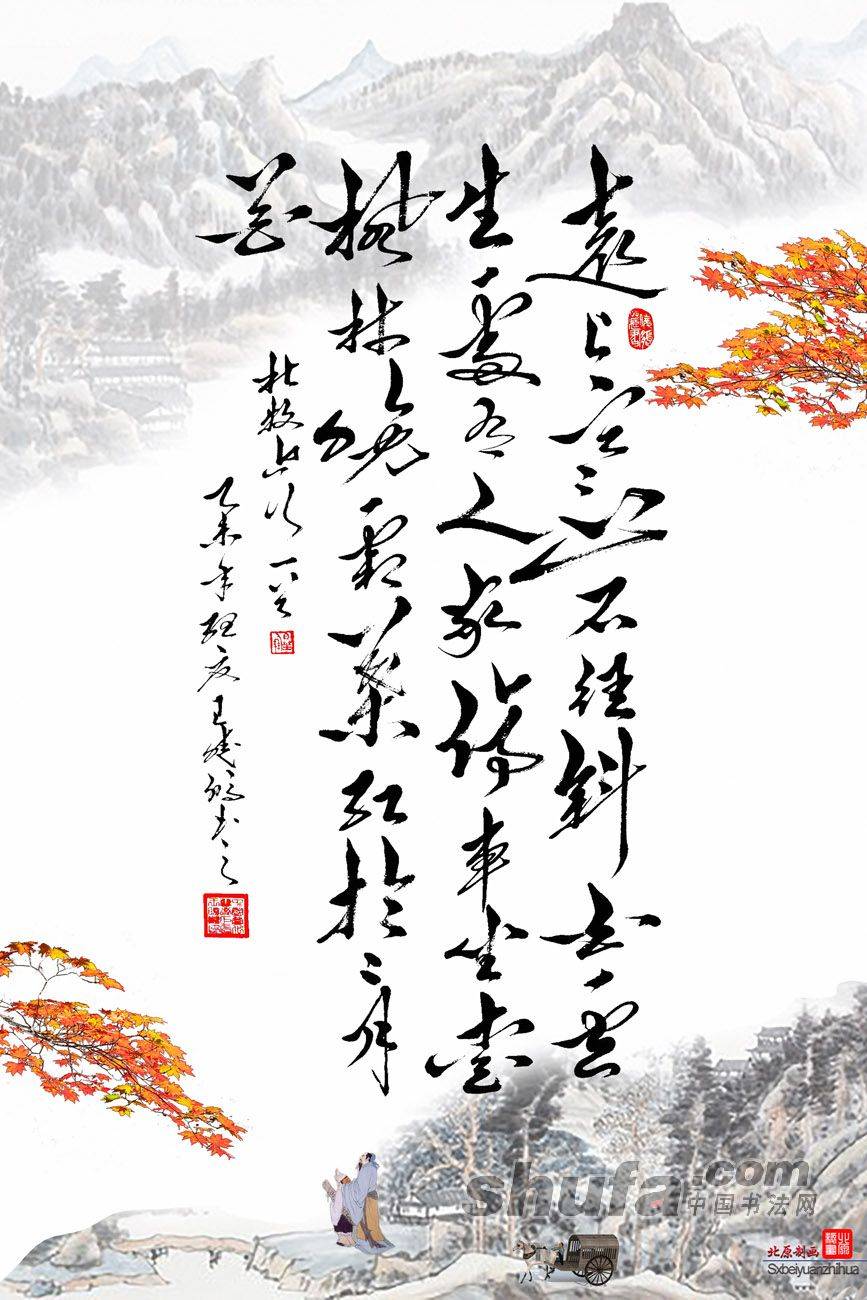 遠上寒山石徑斜白雲
生處有人家停車坐愛
楓林晚霜葉紅於二月
花
杜牧山行一首
乙未年 夏王 書之
shufa.com
中国书法网
北原制画
Sxbeiyuanzhihua